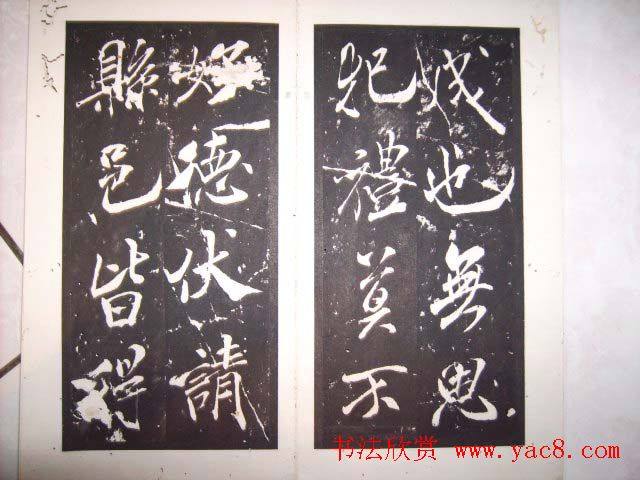 娥也無思
犯禮莫不
好德伏請
縣邑皆得
书法欣赏 www.yac8.com